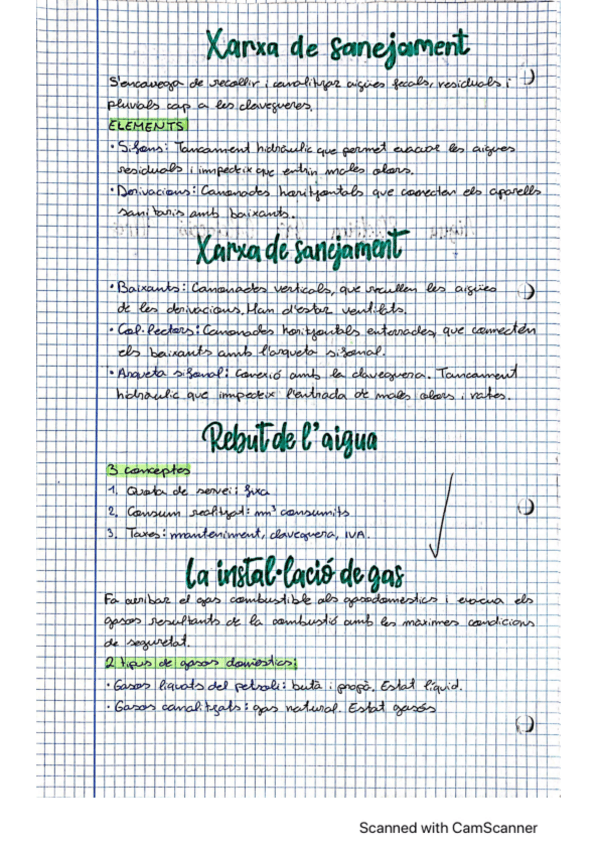 Xarxa de sanejament
S'encarrega de recollir i canalitzar aigües fecals, residuals i
pluvials cap a les clavegueres.
ELEMENTS
· Sifons: Tancament hidràulic que permet evacuar les aigües
residuals i impedeix que entrin males olors.
· Derivacions: Canonades horitzontals que connecten els aparells
sanitaris amb baixants.
Xarxa de sanejament
· Baixants: Canonades verticals, que recullen les aigües
de les derivacions. Han d'estar ventilats.
· Col·lectors: Canonades horitzontals enterrades, que connecten
els baixants amb l'arqueta sifonal.
· Arqueta sifonal: Conexió amb la claveguera. Tancament
hidràulic que impedeix l'entrada de males olors i rates.
Rebut de l'aigua
3 conceptes
1. Quota de servei: fixa
2. Consum realitzat: m³ consumits
3. Taxes: manteniment, claveguera, IVA.
La instal·lació de gas
Fa arribar el gas combustible als gasodomèstics i evacua els
gasos resultants de la combustió amb les màximes condicions
de seguretat.
2 tipus de gasos domèstics:
· Gasos liquats del petroli: butà i propà. Estat líquid.
· Gasos canalitzats: gas natural. Estat gasós
Scanned with CamScanner